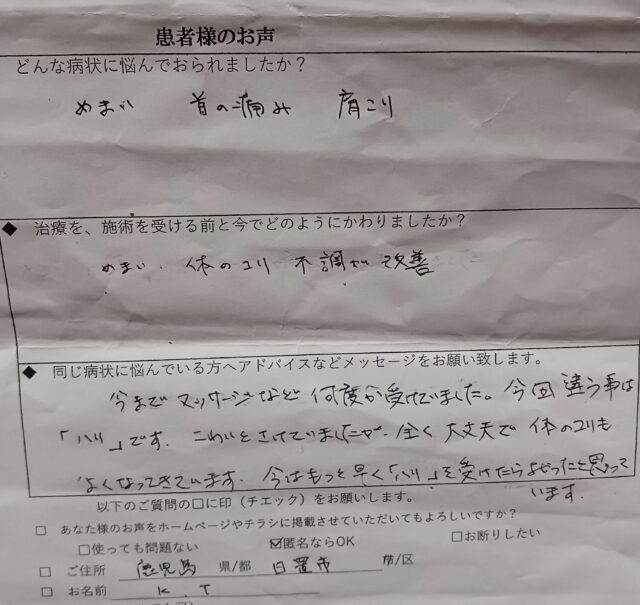 患者様のお声
どんな病状に悩んでおられましたか？
めまい 首の痛み 肩こり
◆ 治療を、施術を受ける前と今でどのようにかわりましたか？
めまい. 体のコリ 不調が改善
◆ 同じ病状に悩んでいる方へアドバイスなどメッセージをお願い致します。
今まで マッサージなど 何度か受けていました。今回 違う事は
「ハリ」です. こわいと さけていましたが. 全く 大丈夫で 体のコリも
よくなってきています. 今はもっと早く「ハリ」を受けたらよかったと思って
います.
以下のご質問の□に印（チェック）をお願いします。
□ あなた様のお声をホームページやチラシに掲載させていただいてもよろしいですか？
□使っても問題ない ☑匿名ならOK □お断りしたい
□ ご住所 鹿児島 県/都 日置市 市/区
□ お名前 K.T